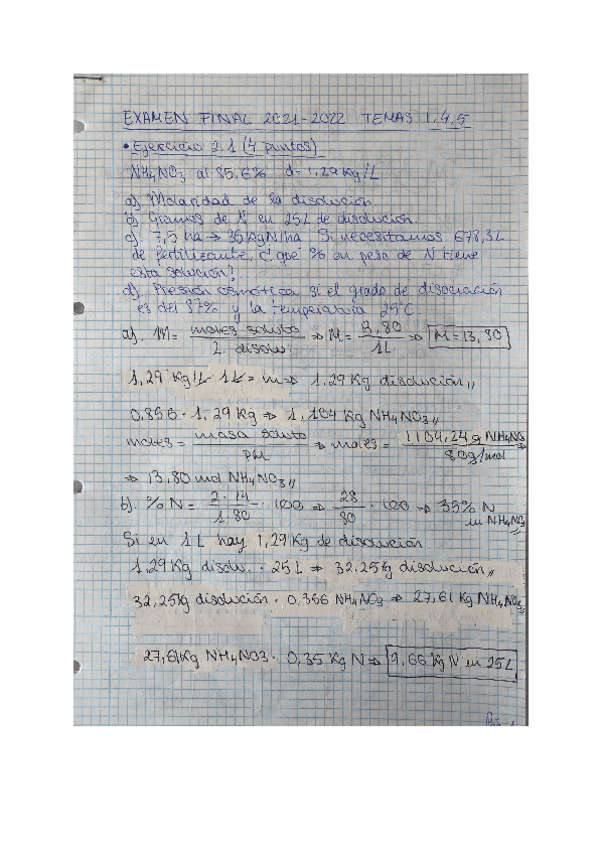 EXAMEN FINAL 2021-2022 TEMAS 1,4,5
• Ejercicio 2.1 (4 puntos)
NH4NO3 al 85,6% d=1,29 Kg/L
a). Molaridad de la disolución
b). Gramos de N en 25L de disolución.
c). 7,5 ha → 35 KgN/ha. Si necesitamos 678,3L
de fertilizante, ¿qué % en peso de N tiene
esta solución?
d). Presión osmótica si el grado de disociación
es del 87% y la temperatura 25ºC.
a). M = moles soluto / L. disolu. ⇒ M = 3,80 / 1L ⇒ M = 13,80
1,29 Kg/L · 1L = m ⇒ 1,29 Kg disolución,,
0.856 · 1,29 Kg ⇒ 1,104 Kg NH4NO3,,
moles = masa soluto / PM ⇒ moles = 1104,24 g NH4NO3 / 80g/mol ⇒
⇒ 13,80 mol NH4NO3,,
b). % N = 2·14 / 1·80 · 100 ⇒ 28 / 80 · 100 ⇒ 35% N
en NH4NO3
Si en 1L hay 1,29 Kg de disolución
1,29 Kg disolu. · 25L ⇒ 32.25 Kg disolución,,
32,25 Kg disolución · 0,856 NH4NO3 ⇒ 27,61 Kg NH4NO3
27,61 Kg NH4NO3 · 0,35 Kg N ⇒ 9,66 Kg N en 25L